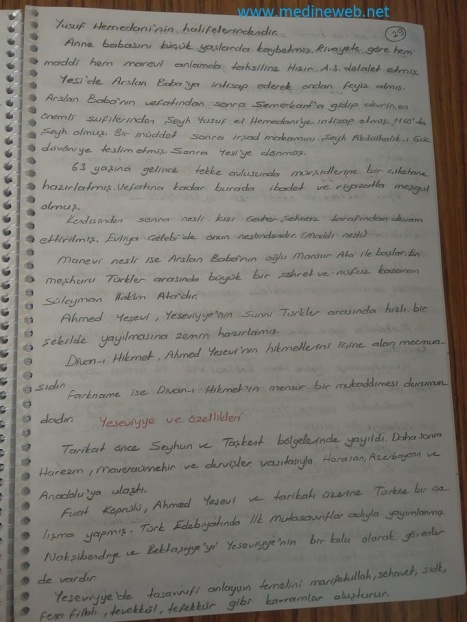 www.medineweb.net
23
Yusuf Hemedani'nin halifelerindendir.
Anne babasını küçük yaşlarda kaybetmiş. Rivayete göre hem
maddi hem manevi anlamda tahsiline Hızır A.S. delalet etmiş.
Yesi'de Arslan Baba'ya intisap ederek ondan feyiz almış.
Arslan Baba'nın vefatından sonra Semerkant'a gidip devrin en
önemli sufilerinden Şeyh Yusuf el Hemedani'ye intisap etmiş. 1160'da
şeyh olmuş. Bir müddet sonra irşad makamını Şeyh Abdolhalık-ı Guc
düvani'ye teslim etmiş sonra Yesi'ye dönmüş.
63 yaşına gelince tekke avlusunda müridlerine bir çilehane
hazırlatmış. Vefatına kadar burada ibadet ve riyazatla meşgul
olmuş.
Kendisinden sonra nesli kızı Gevher Şehnaz tarafından devam
ettirilmiş. Evliya Çelebi'de onun neslindendir. (Maddi nesli)
Manevi nesli ise Arslan Baba'nın oğlu Mansur Ata ile başlar. En
meşhuru Türkler arasında büyük bir şöhret ve nüfuz kazanan
Süleyman Hakim Ata'dır.
Ahmed Yesevi, Yeseviyye'nin Sünni Türkler arasında hızlı bir
şekilde yayılmasına zemin hazırlamış
Divan-ı Hikmet, Ahmed Yesevi'nin hikmetlerini içine alan mecmua-
sıdır.
Fakrname ise Divan-ı Hikmet'in mensur bir mukaddimesi durumun-
dadır.
Yeseviyye ve özellikleri
Tarikat önce Seyhun ve Taşkent bölgelerinde yayıldı. Daha sonra
Harezm, Maveraünnehir ve dervişler vasıtasıyla Horasan, Azerbaycan ve
Anadolu'ya ulaştı.
Fuat Köprülü, Ahmed Yesevi ve tarikatı üzerine Türkçe bir ça
lışma yapmış. Türk Edebiyatında İlk Mutasavvıflar adıyla yayımlanmış
Nakşibendiye ve Bektaşiyye'yi Yeseviyye'nin bir kolu olarak görenler
de vardır
Yeseviyye'de tasavvufi anlayışın temelini marifetullah, sehavet, sıdk,
fena fillah, tevekkül, tefekkür gibi kavramlar oluşturur.